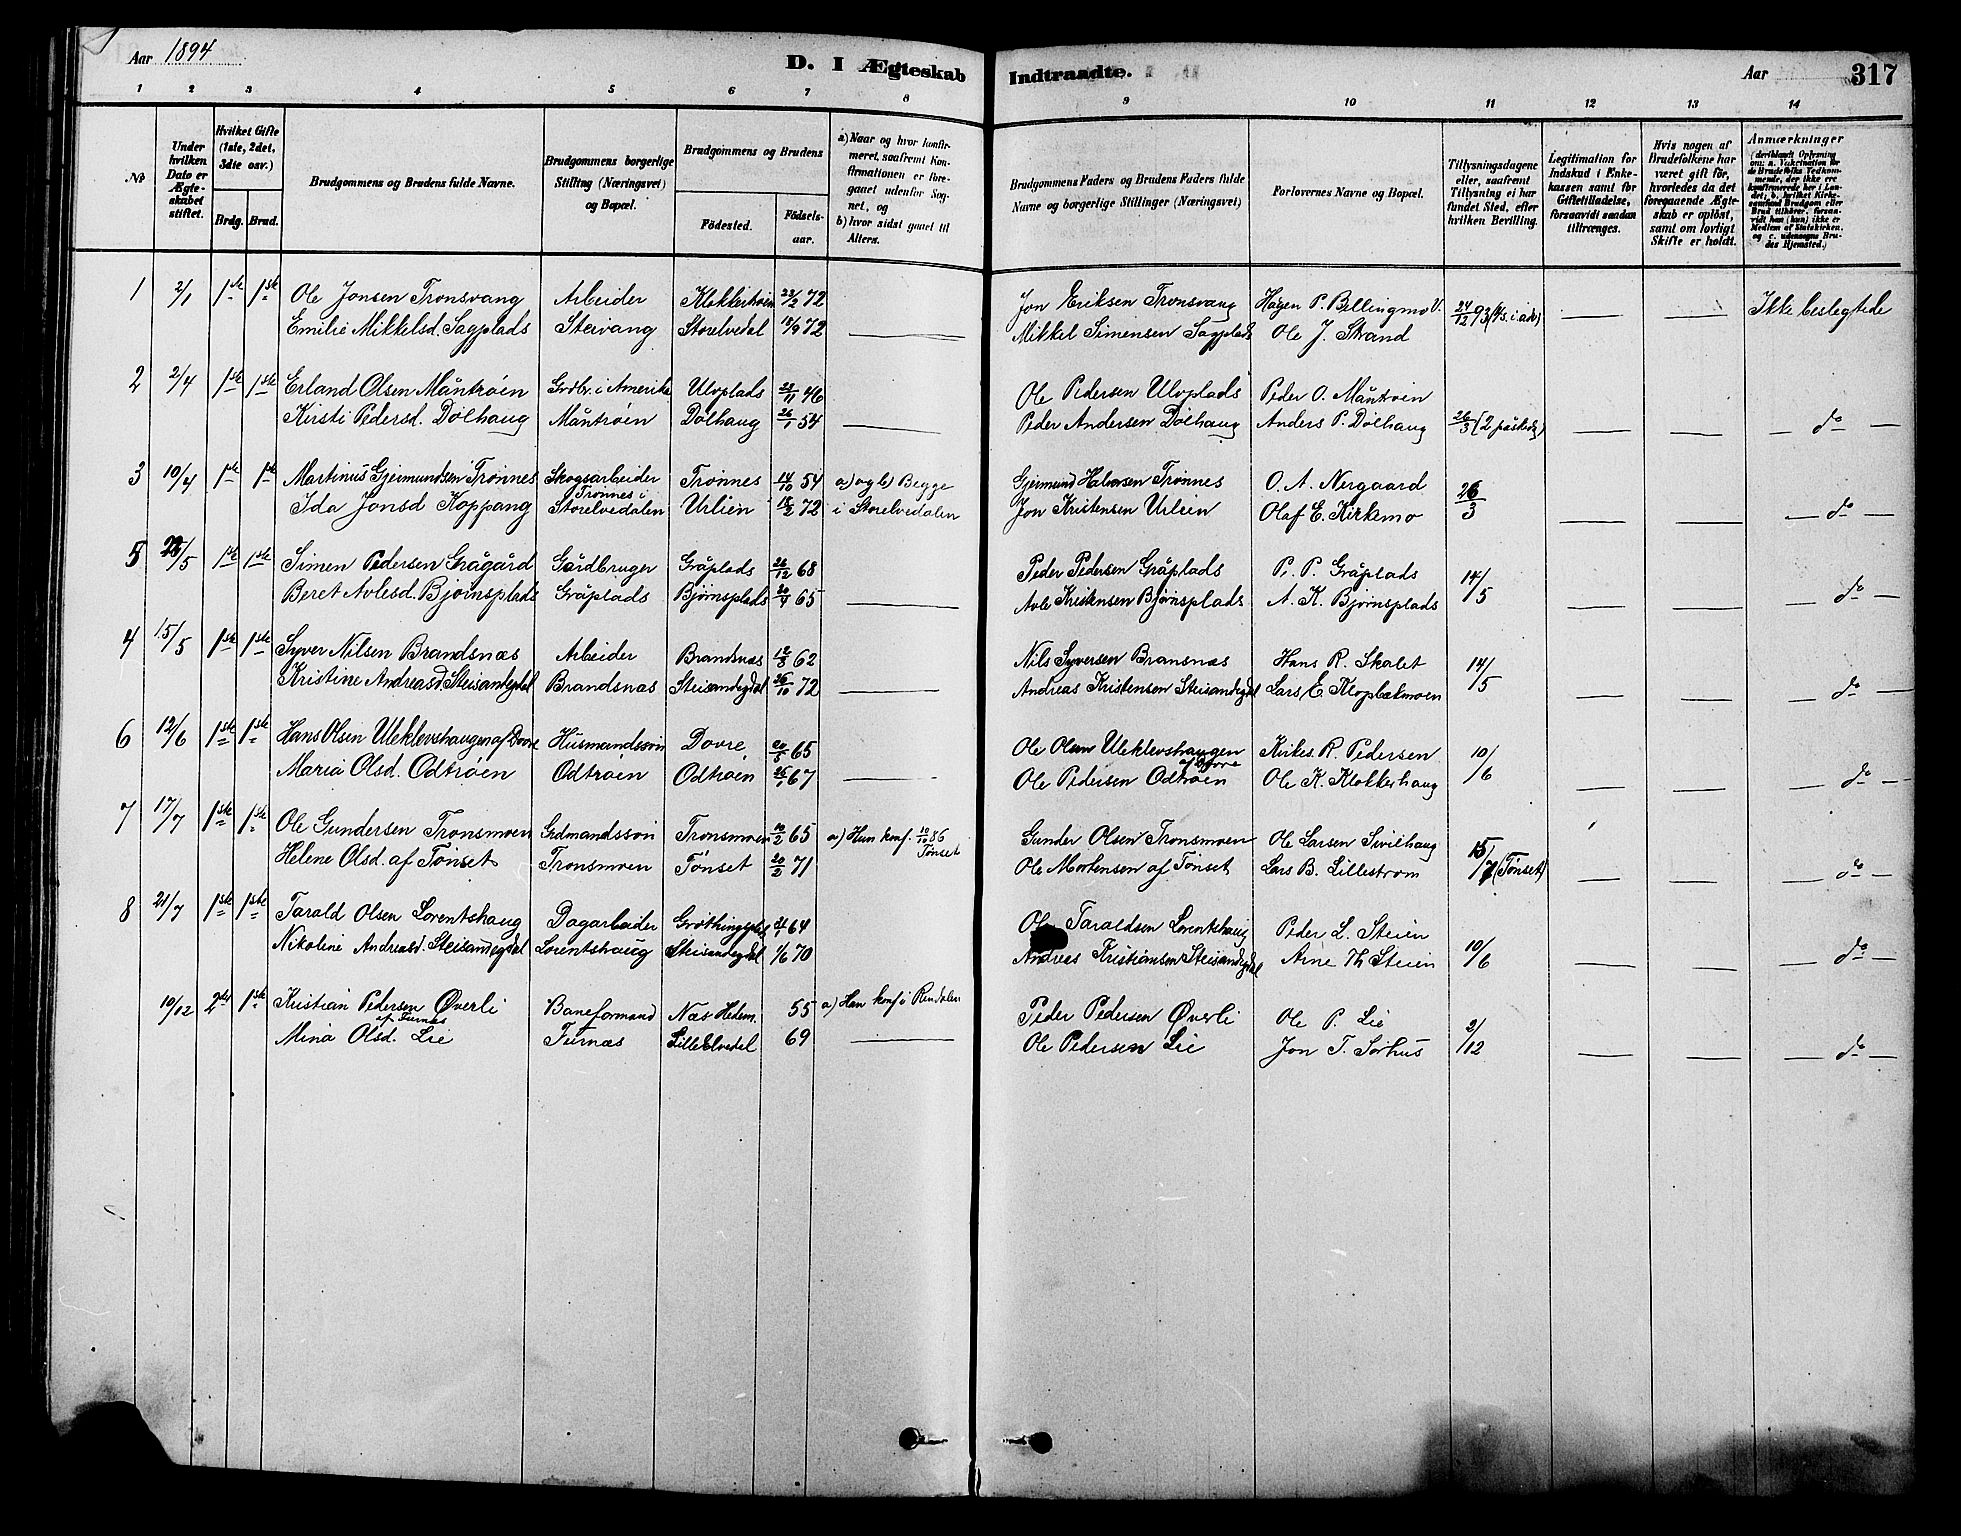 Aar 1894
D. I Ægteskab Indtraadte.
Aar
317
1 2 3 4 5 6 7 8 9 10 11 12 13 14
No
Under hvilken Dato er Ægteskabet stiftet.
Hvilket Gifte (1ste, 2det, 3die osv.)
Brdg. Brud.
Brudgommens og Brudens fulde Navne.
Brudgommens borgerlige Stilling (Næringsvei) og Bopæl.
Brudgommens og Brudens
Födested.
Födsels-aar.
a) Naar og hvor konfirmeret, saafremt Konfirmationen er foregaaet udenfor Sognet, og
b) hvor sidst gaaet til Alters.
Brudgommens Faders og Brudens Faders fulde Navne og borgerlige Stillinger (Næringsvei)
Forlovernes Navne og Bopæl.
Tillysningsdagene eller, saafremt Tillysning ei har fundet Sted, efter hvilken Bevilling.
Legitimation for Indskud i Enkekassen samt for Giftetilladelse, forsaavidt saadan tiltrænges.
Hvis nogen af Brudefolkene har været gift för, hvorledes da det foregaaende Ægteskab er oplöst, samt om lovligt Skifte er holdt.
Anmærkninger
(deriblandt Oplysning om: a. Vakcination for de Brudefolks Vedkommende, der ikke ere konfirmerede her i Landet, b. hvilket Kirkesamfund Brudgom eller Brud tilhörer, forsaavidt han (hun) ikke er Medlem af Statskirken, og c. udensogns Brudes Hjemsted.)
1 2/1 1ste 1ste Ole Jonsen Tronsvang Arbeider Klokkerhøien 22/2 72 Jon Eriksen Tronsvang Hågen P. Bellingmo 24/12 93 Ikke beslegtede
Emilie Mikkelsd. Sagplads Steivang Storelvedal 18/9 72 Mikkel Simensen Sagplads Ole J. Strand
2 2/4 1ste 1ste Erland Olsen Måntrøen Grdbr. i Amerika Ulvplads 28/11 46 Ole Pedersen Ulvplads Peder O. Måntrøen
Kirsti Pedersd. Dølhaug Måntrøen Dølhaug 26/1 54 Peder Andersen Dølhaug Anders P. Dølhaug 26/3 (2 påskedg) do
3 10/4 1ste 1ste Martinus Gjermundsen Trønnes Skogsarbeider Trønnes 14/10 54 a) og b) Begge Gjermund Halvorsen Trønnes O. A. Nergaard 26/3
Ida Jonsd Koppang Trønnes i Storelvedalen Urlien 18/2 72 i Storelvedalen Jon Kristensen Urlien Olaf E. Kirkemo do
5 /5 1ste 1ste Simen Pedersen Grågård Gårdbruger Gråplads 26/12 68 Peder Pedersen Gråplads P. P. Gråplads 14/5
Beret Avlesd. Bjørnsplads Gråplads Bjørnsplads 20/4 65 Avle Kristensen Bjørnsplads A. K. Bjørnsplads do
4 15/5 1ste 1ste Syver Nilsen Brandsnæs Arbeider Brandsnæs 12/8 62 Nils Syversen Bransnæs Hans R. Skalet 14/5
Kristine Andreasd Steisandegdal Brandsnæs Steisandegdal 26/10 72 Andreas Kristensen Steisandegdal Lars E. Klopbakmoen do
6 12/6 1ste 1ste Hans Olsen Uleklevshaugen af Dovre Husmandssøn Dovre 20/5 65 Ole Olsen Uleklevshaugen af Dovre Kirkes. R. Pedersen 10/6
Maria Olsd. Odtrøen Odtrøen Odtrøen 26/1 67 Ole Pedersen Odtrøen Ole K. Klokkerhaug do
7 17/7 1ste 1ste Ole Gundersen Tronsmoen Grdmandssøn Tronsmoen 10/2 65 a) Hun konf. 10/10 86 Tønset Gunder Olsen Tronsmoen Ole Larsen Sivilhaug 15/7 (Tønset)
Helene Olsd. af Tønset Tronsmoen Tønset 20/2 71 Ole Mortensen af Tønset Lars B. Lillestrøm do
8 21/7 1ste 1ste Tarald Olsen Lorentshaug Dagarbeider Grøthingsplds 21/1 64 Ole Taraldsen Lorentshaug Peder L. Steien 10/6
Nikoline Andreasd. Steisandegdal Lorentshaug Steisandegdal 1/6 70 Andreas Kristiansen Steisandegdal Arne Th Steien do
10/12 2det 1ste Kristian Pedersen Øverli af Furnæs Baneformand Næs Hedem. 55 a) Han konf i Rendalen Peder Pedersen Øverli Ole P. Lie 2/12
Mina Olsd. Lie Furnæs Lille Elvedal 69 Ole Pedersen Lie Jon T. Sørhus do